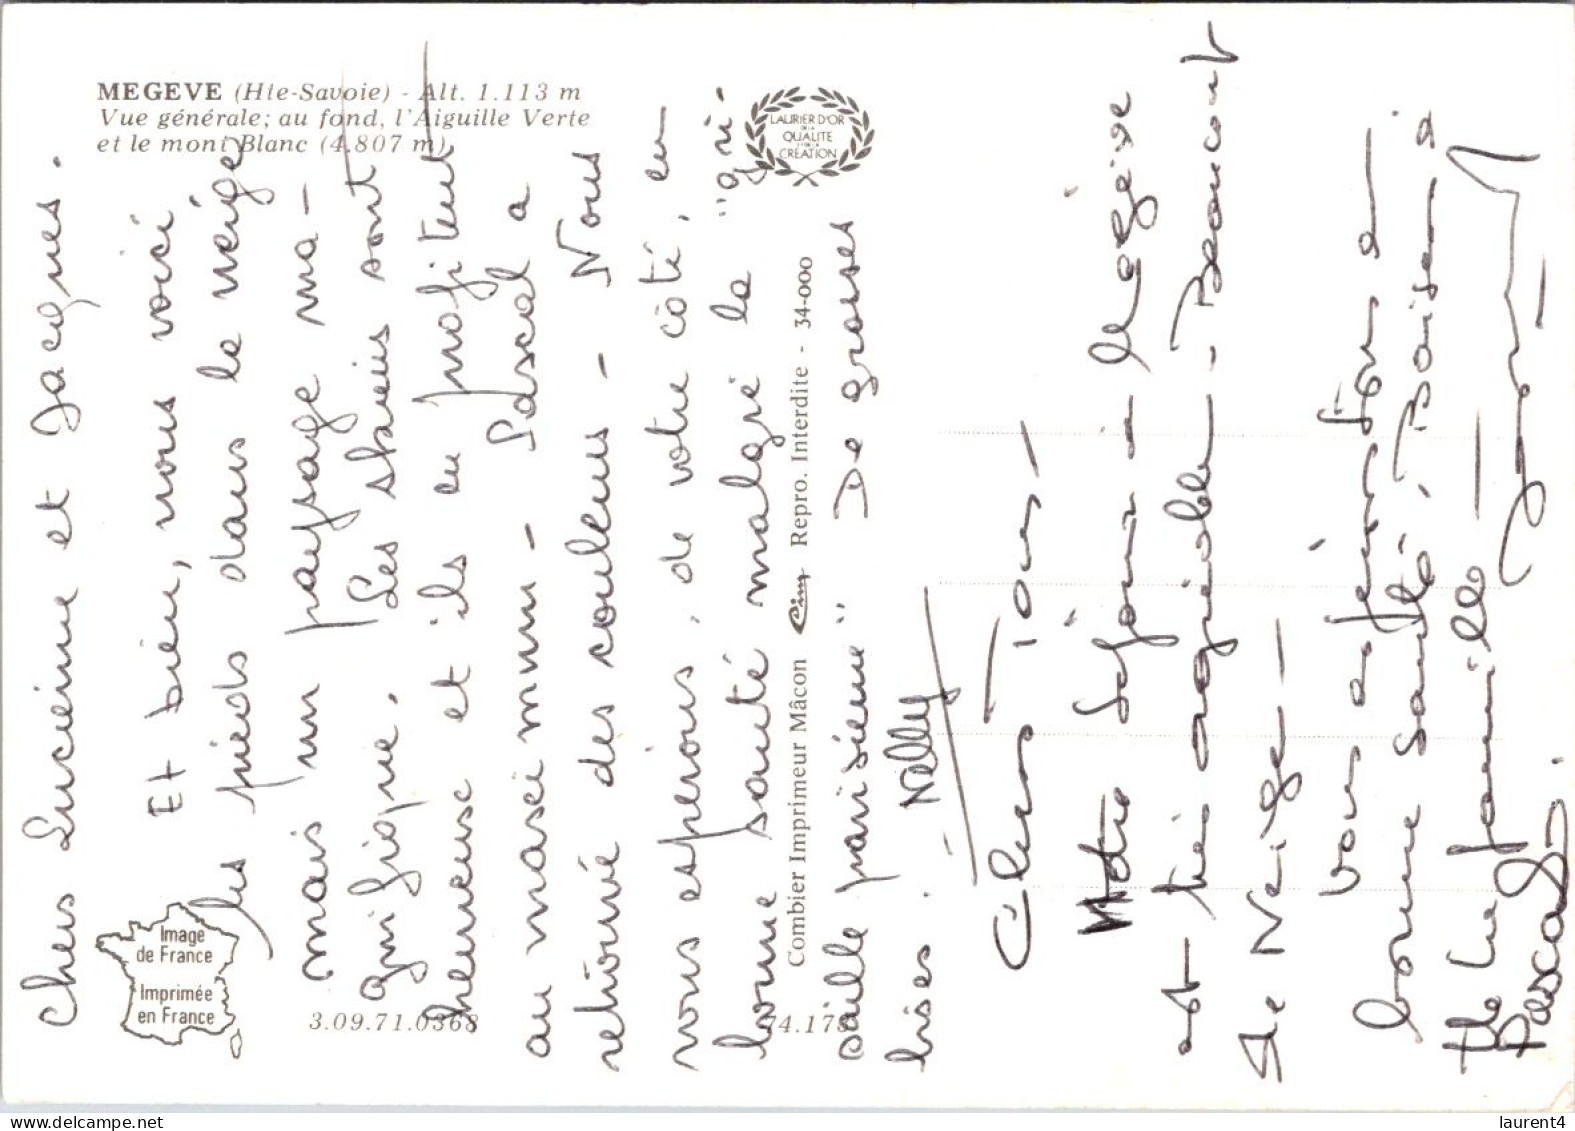 MEGEVE (Hte-Savoie) - Alt. 1.113 m
Vue générale; au fond, l'Aiguille Verte
et le mont Blanc (4.807 m)
LAURIER D'OR
DE LA
QUALITE
ET DE LA
CRÉATION
Image
de France
Imprimée
en France
3.09.71.0368
74.178
Combier Imprimeur Mâcon Cim Repro. Interdite - 34-000
Chers Lucienne et Jacques.
Et bien, nous voici
les pieds dans la neige
mais un paysage ma-
gnifique. Les skieurs sont
heureuse et ils en profitent
au maximum - Pascal a
retrouvé des couleurs - Nous
vous espérons, de votre côté, en
bonne santé malgré la "gri-
saille parisienne" De grosses
bises. Nelly
Chers Tous -
Notre Séjour a Megève
est très agréable - Beaucoup
de Neige -
Vous
bonne santé, Baisers a
la famille -
Pascal.
laurent4